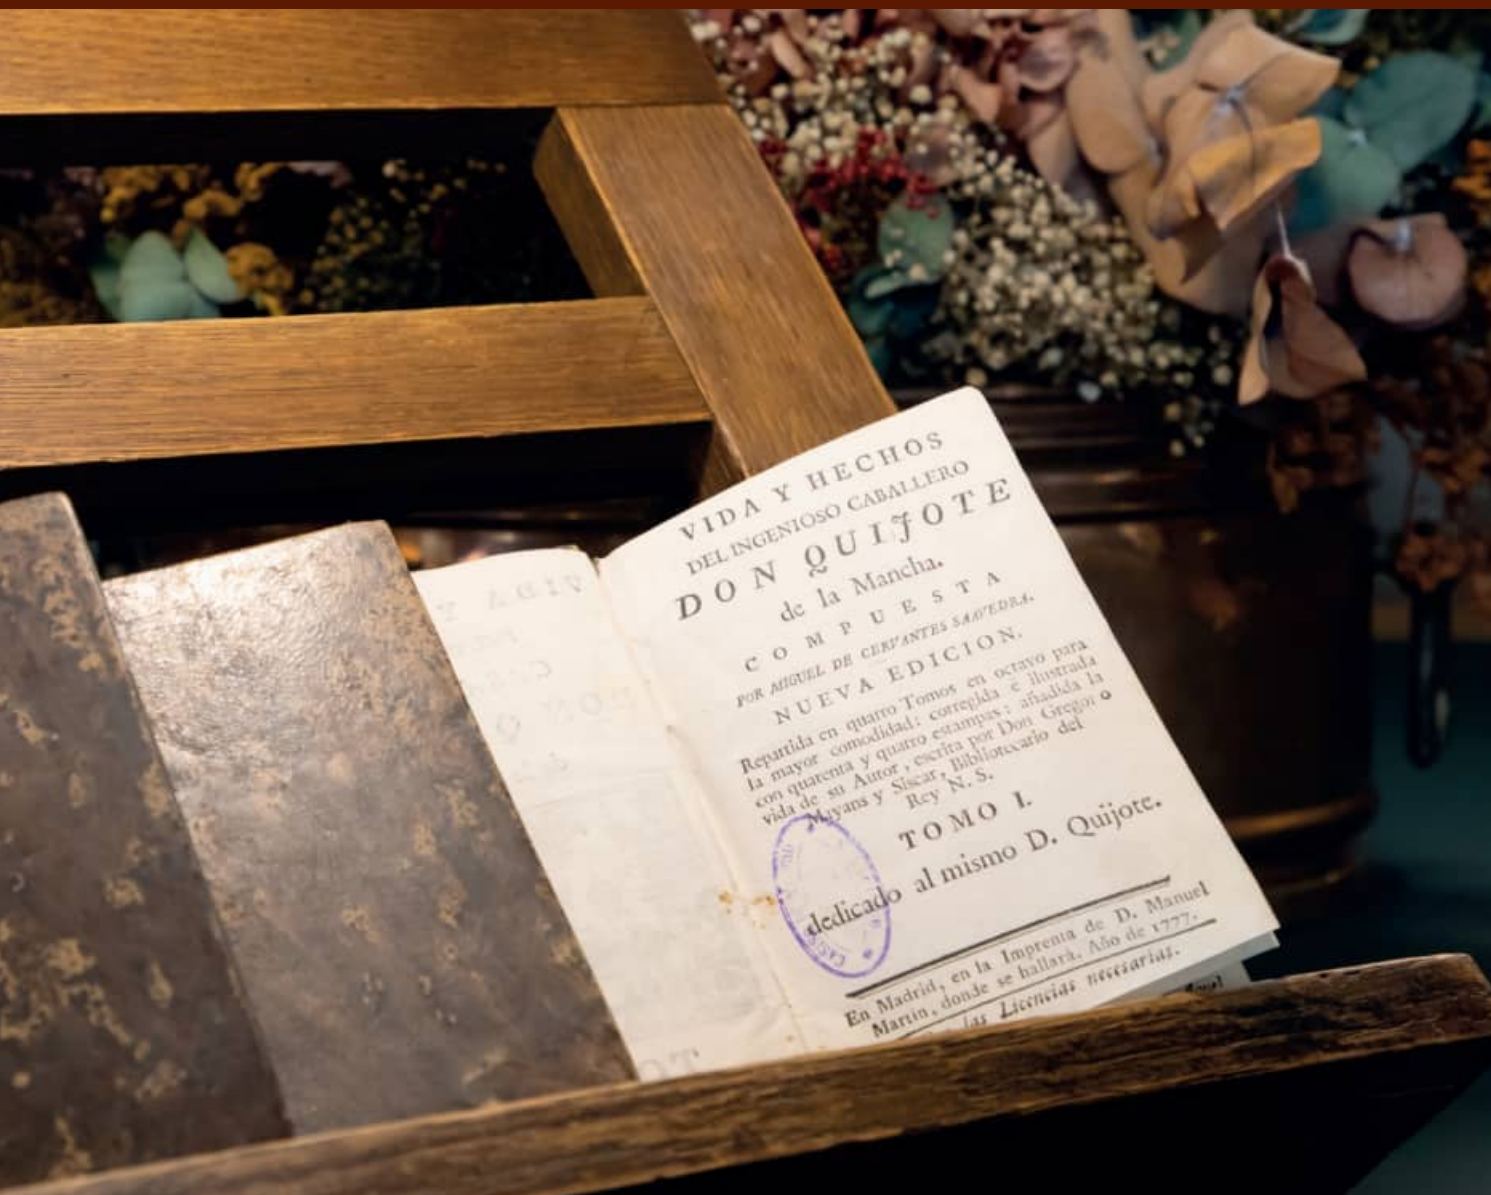 VIDA Y HECHOS
DEL INGENIOSO CABALLERO
DON QUIJOTE
de la Mancha.
COMPUESTA
POR MIGUEL DE CERVANTES SAAVEDRA.
NUEVA EDICION.
Repartida en quatro Tomos en octavo para
la mayor comodidad: corregida é ilustrada
con quarenta y quatro estampas: añadida la
vida de su Autor, escrita por Don Gregorio
Mayans y Siscar, Bibliotecario del
Rey N. S.
TOMO I.
dedicado al mismo D. Quijote.
En Madrid, en la Imprenta de D. Manuel
Martin, donde se hallará. Año de 1777.
las Licencias necesarias.